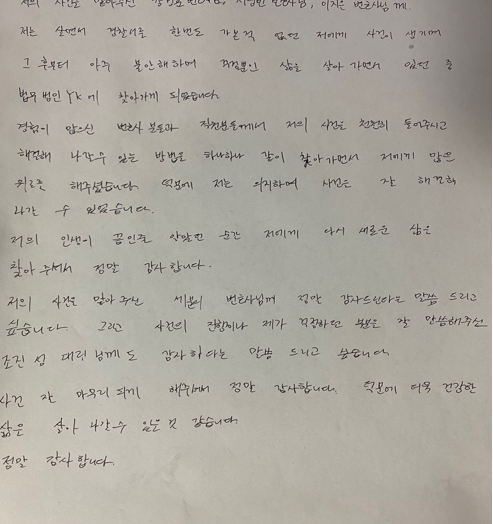 저의 사건을 맡아주신 변호사님, 변호사님, 이지은 변호사님께.
저는 살면서 경찰서를 한번도 가본적 없던 저에게 사건이 생기며
그 후부터 아주 불안해하며 삶을 살아가면서 있던 중
법무법인 YK에 찾아가게 되었습니다.
경험이 많으신 변호사 분들과 직원분들께서 저의 사건을 천천히 들어주시고
해결해 나갈수 있는 방법을 하나하나 같이 찾아가면서 저에게 많은
위로를 해주셨습니다. 덕분에 저는 의지하며 사건을 잘 해결해
나갈 수 있었습니다.
저의 인생이 끝인줄 알았던 순간 저에게 다시 새로운 삶을
찾아 주셔서 정말 감사합니다.
저의 사건을 맡아 주신 세분의 변호사님께 정말 감사드린다는 말씀 드리고
싶습니다. 그리고 사건의 진행이나 제가 걱정하던 부분을 잘 말씀해주신
조진성 대리님께도 감사하다는 말씀 드리고 싶습니다.
사건 잘 마무리 되게 해주셔서 정말 감사합니다. 덕분에 더욱 건강한
삶을 살아 나갈수 있을 것 같습니다.
정말 감사합니다.